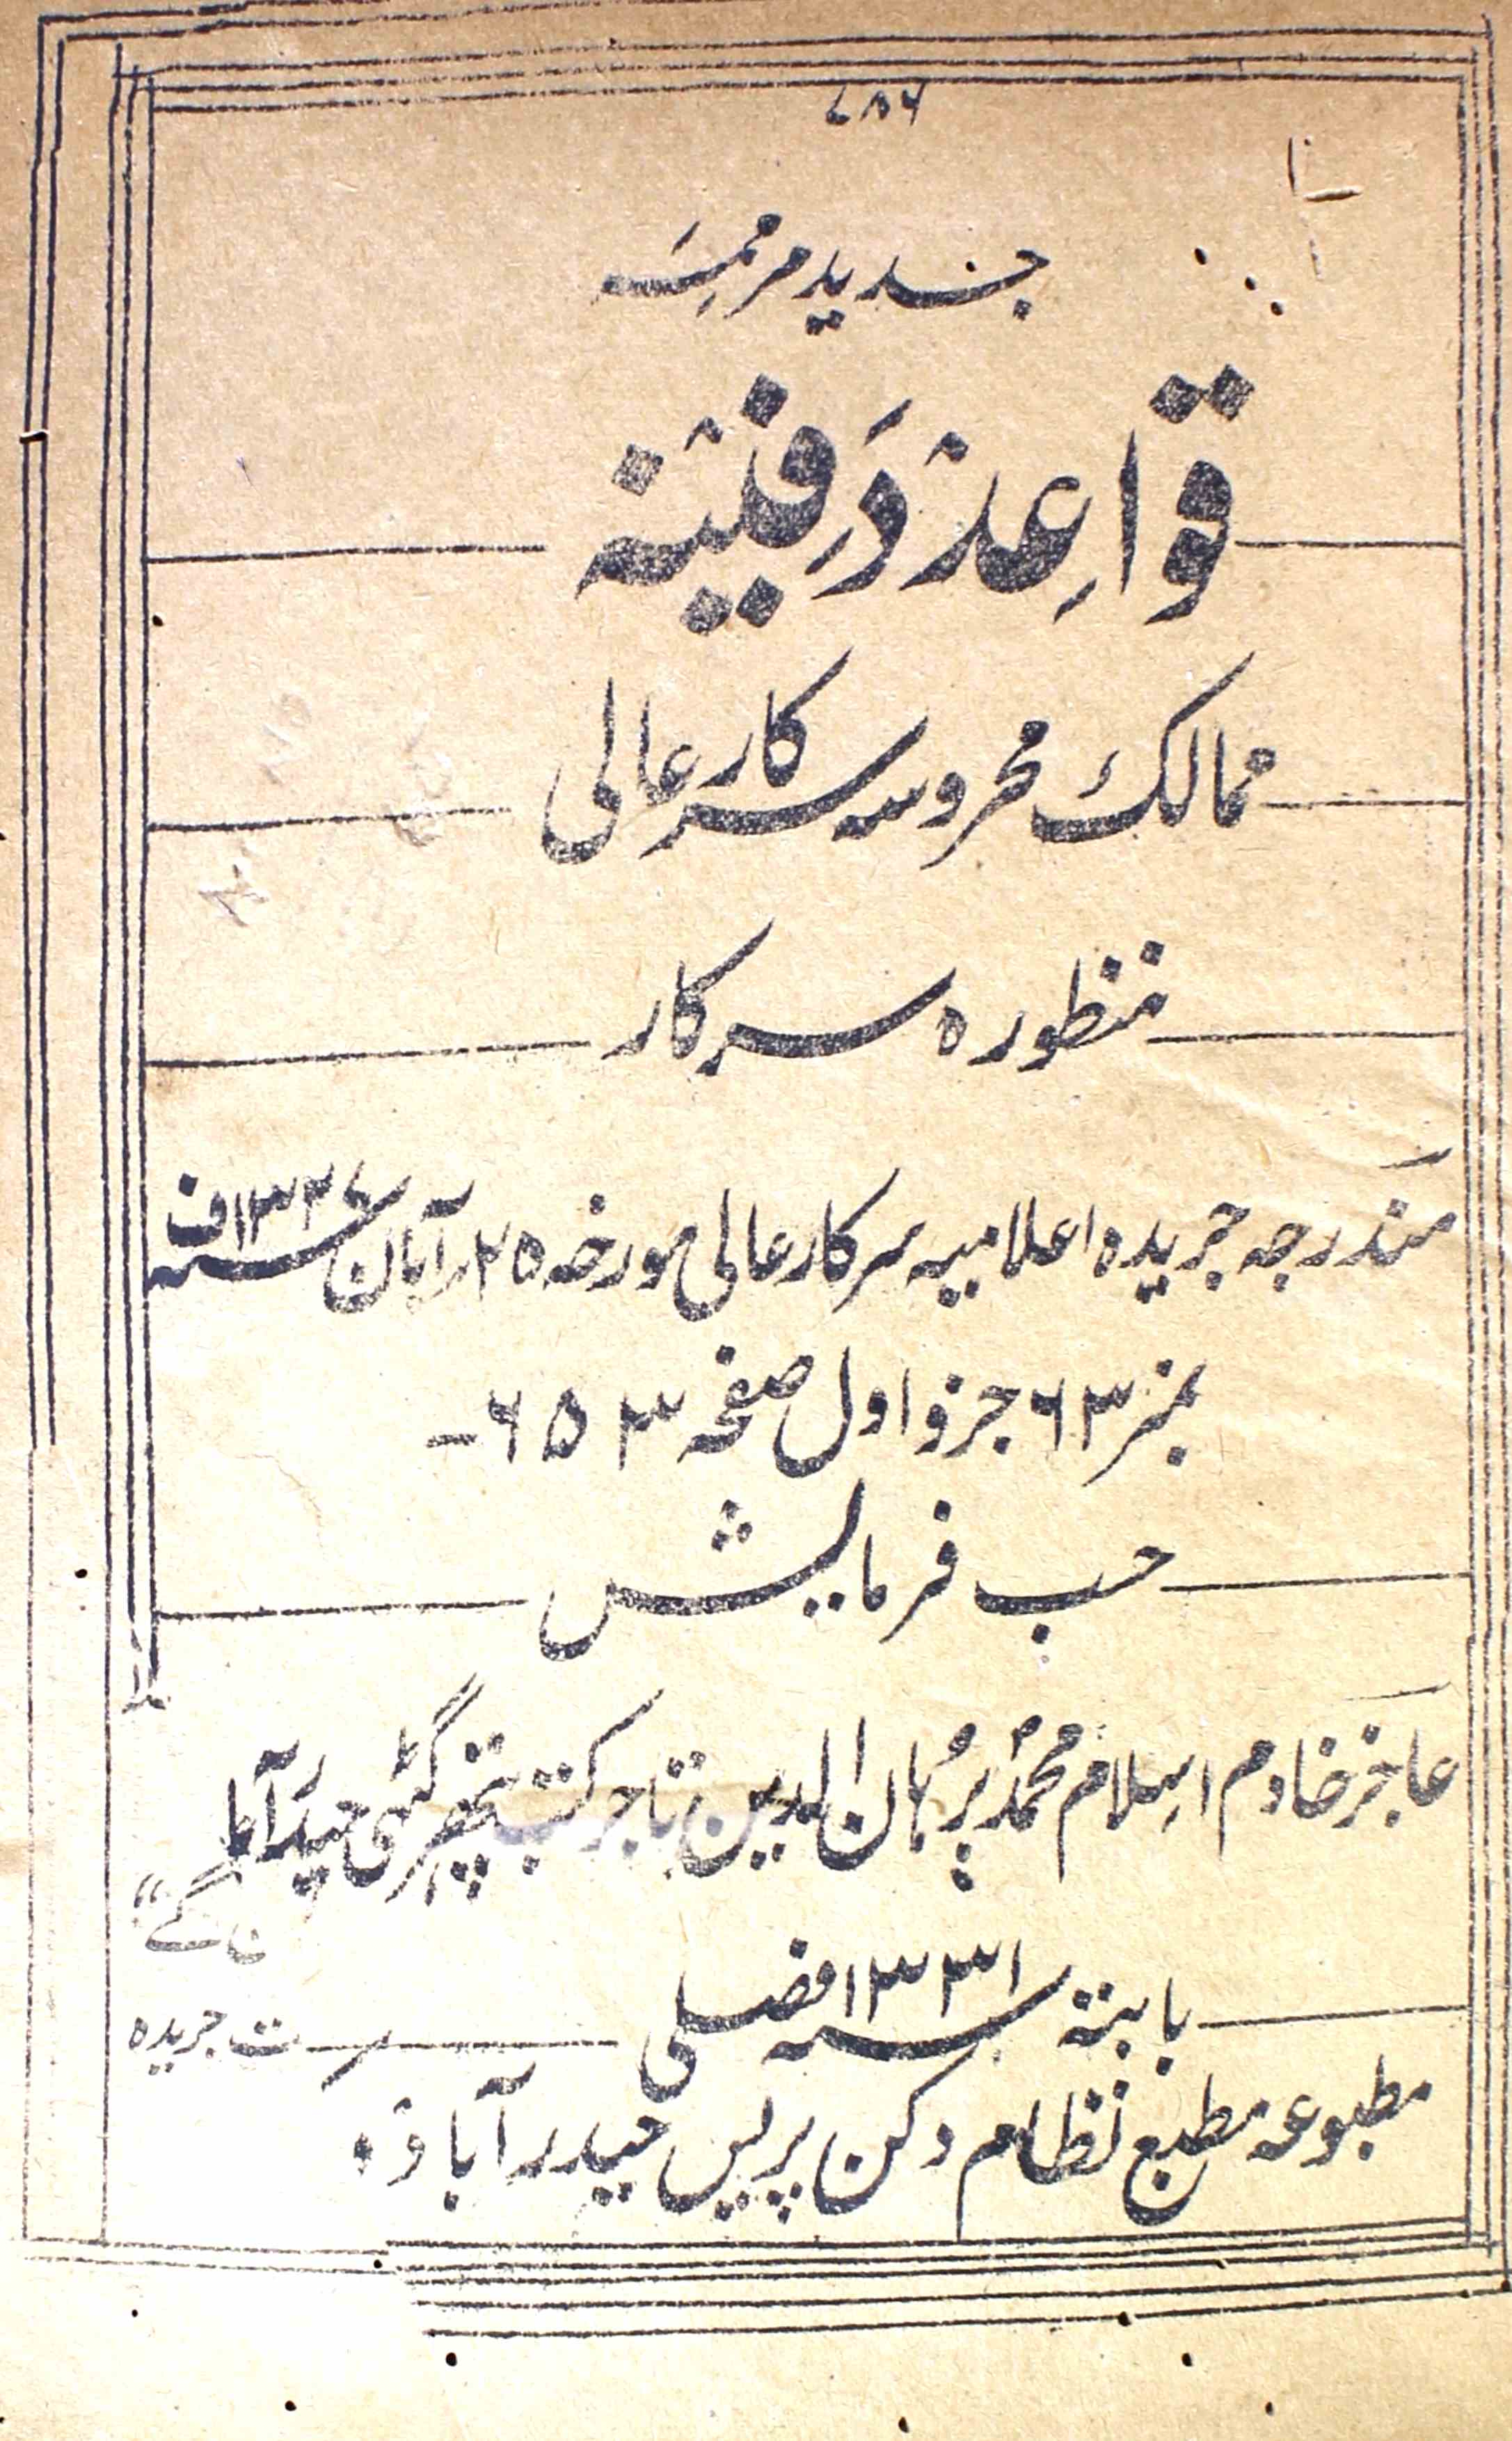 ۷۸۶
جدید مرممہ
قواعد دفینہ
ممالک محروسہ سرکار عالی
منظورہ سرکار
مندرجہ جریدہ اعلامیہ سرکار عالی مورخہ ۲۵ آبان سنہ ۱۳۲۷ ف
نمبر ۶۳ جزو اول صفحہ ۶۵۳ -
حسب فرمایش
عاجز خادم اسلام محمد برہان الدین تاجر کتب پتھر گٹی حیدرآباد
بابتہ سنہ ۱۳۳۱ فصلی
جریدہ
مطبوعہ مطبع نظام دکن پریس حیدرآباد